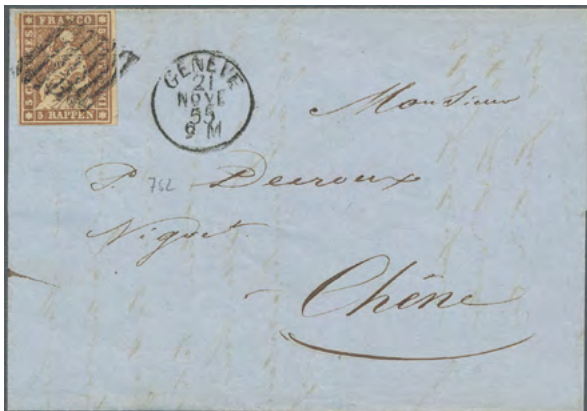 FRANCO
5 RAPPEN
GENÈVE
21
NOVE
55
9 M
Monsieur
P. 752 Decroux
Chêne